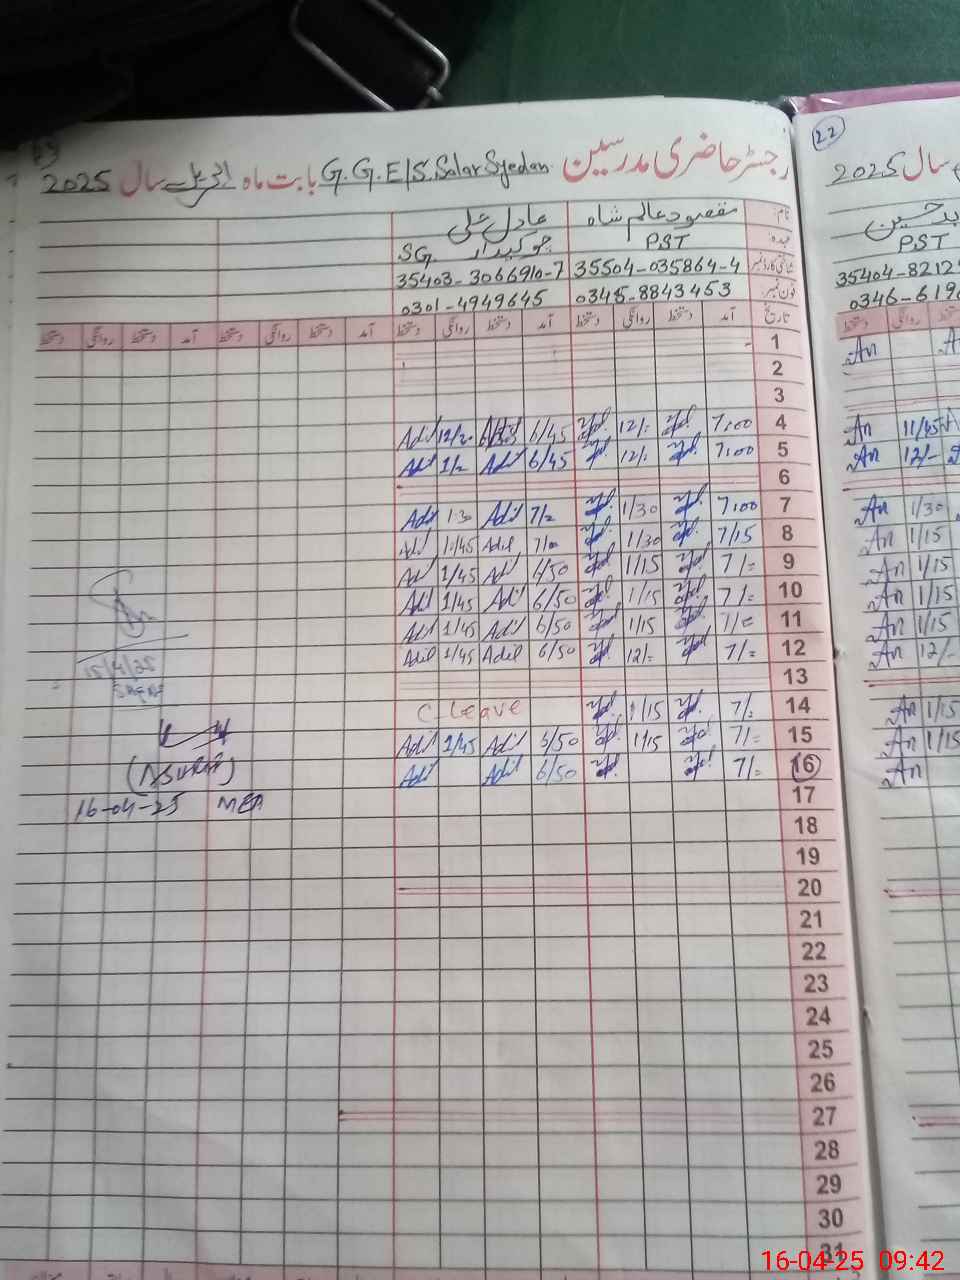 رجسٹر حاضری مدرسین G.G.E/S. Salar Syedan بابت ماہ اپریل سال 2025
نام: مقصود عالم شاہ عادل علی
عہدہ: PST چوکیدار SG.
شناختی کارڈ نمبر 35504-035864-4 35403-3066910-7
فون نمبر: 0345-8843453 0301-4949645
تاریخ آمد دستخط روانگی دستخط آمد دستخط روانگی دستخط آمد دستخط روانگی دستخط آمد دستخط روانگی دستخط
1
2
3
4 7:00 12/- 6/45 Adil
5 7:00 12/- 6/45 Adil 1/2 Adil
6
7 7:00 1/30 7/2 Adil 1:30 Adil
8 7/15 1/30 Adil 1:45 Adil
9 7/- 1/15 Adil 1/45 Adil
10 7/- 1/15 6/50 Adil 1/45 Adil
11 7/- 1/15 6/50 Adil 1/45 Adil
12 7/- 12/- 6/50 Adil 1/45 Adil
13
14 7/- 1/15 C Leave
15 7/- 1/15 6/50 Adil 1/45 Adil
16 7/- 6/50 Adil Adil
17
18
19
20
21
22
23
24
25
26
27
28
29
30
31
15/4/25
16-04-25 MEA
22
سال 2025
PST
35404-8212
0346-619
روانگی دستخط
An
An 11/45
An 12/-
An 1/30
An 1/15
An 1/15
An 1/15
An 1/15
An 12/-
An 1/15
An 1/15
An
16-04-25 09:42